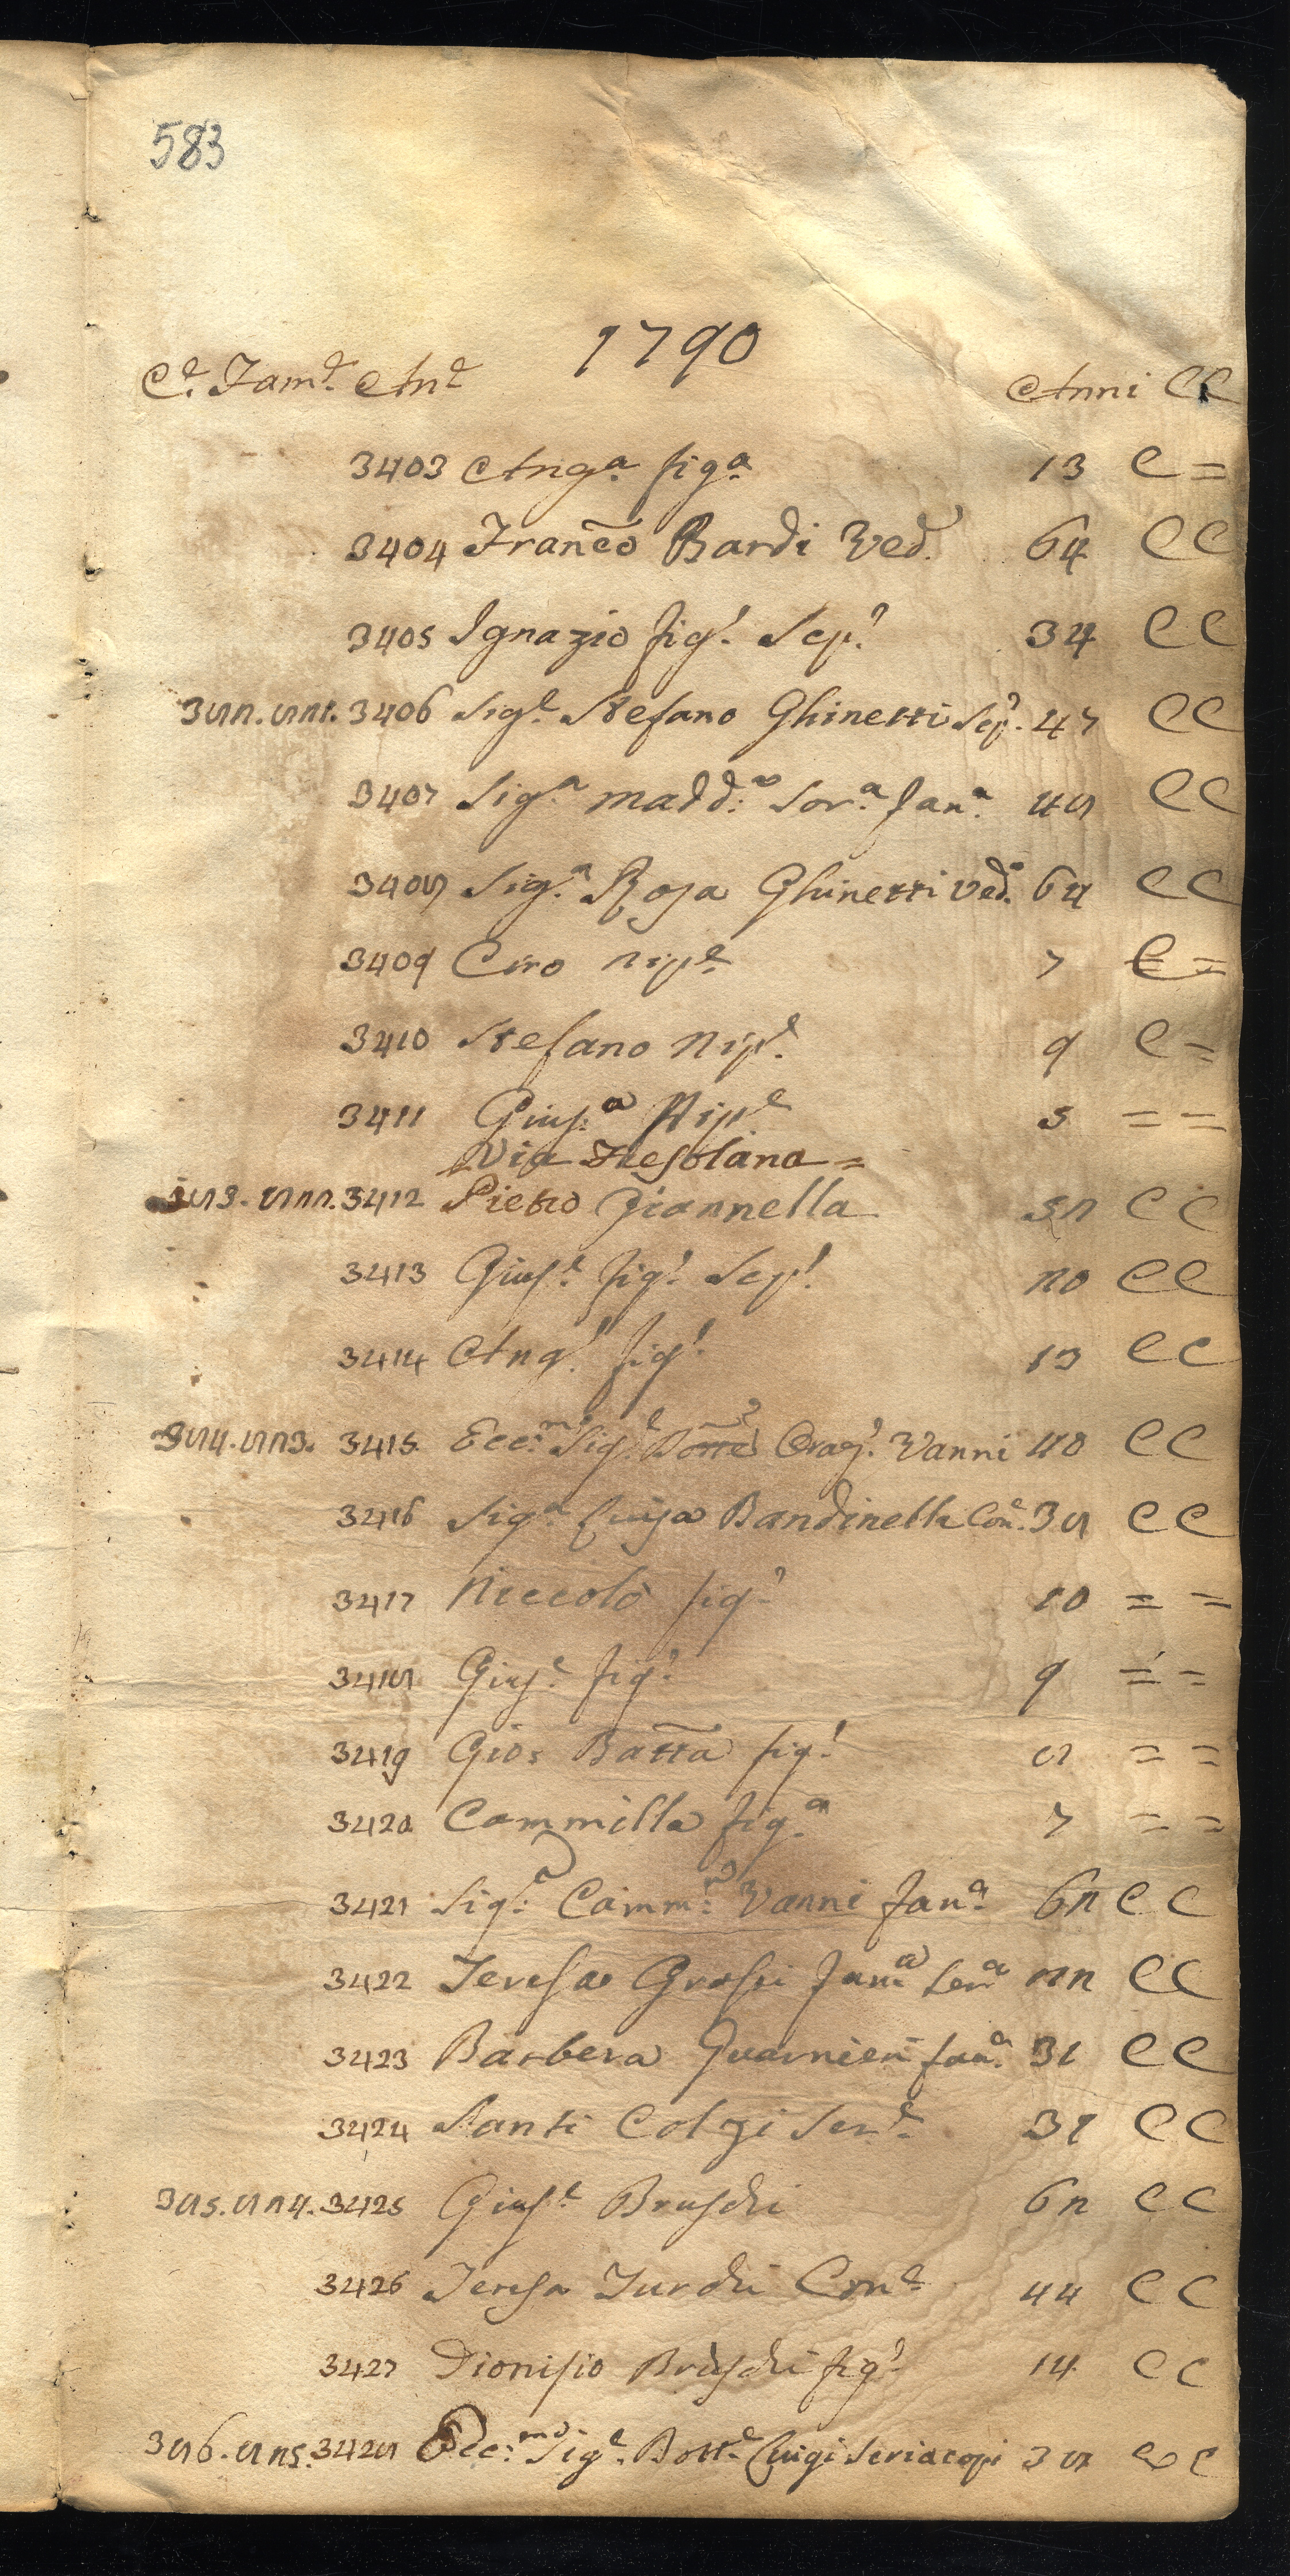 583
1790
Ce. Fame. Ane Anni CC
3403 Anga. figa. 13 C =
3404 Franco Bardi Ved. 64 CC
3405 Ignazio figo. Scpo. 34 CC
382. 821. 3406 Sige. Stefano Ghinetti Scpo. 47 CC
3407 Siga. Madda. Sora. fana. 48 CC
3408 Siga. Rosa Ghinetti Veda. 64 CC
3409 Ciro nipe. 7 C =
3410 Stefano Nipe. 9 C =
3411 Giusa. Nipe. 5 = =
Via Fiesolana =
383. 822. 3412 Pietro Giannella 52 CC
3413 Giuse. figo. Scpo. 20 CC
3414 Ango. figo. 13 CC
384. 823. 3415 Eccmo. Sige. Dotte Orazo. Vanni 40 CC
3416 Siga. Luisa Bandinelli Cone. 38 CC
3417 Niccolò figo. 10 = =
3418 Giuse. figo. 9 = =
3419 Gio: Batta figo. 8 = =
3420 Cammilla figa. 7 = =
3421 Siga. Camma. Vanni fana. 62 CC
3422 Teresa Grossi fana Sera 22 CC
3423 Barbera Guarnieri fana. 31 CC
3424 Santi Colzi Sere. 31 CC
385. 824. 3425 Giuse. Bruschi 62 CC
3426 Teresa Turchi Cone. 44 CC
3427 Dionisio Bruschi figo. 14 CC
386. 825. 3428 Eccmo. Sige. Dotte. Luigi Seriacopi 38 CC